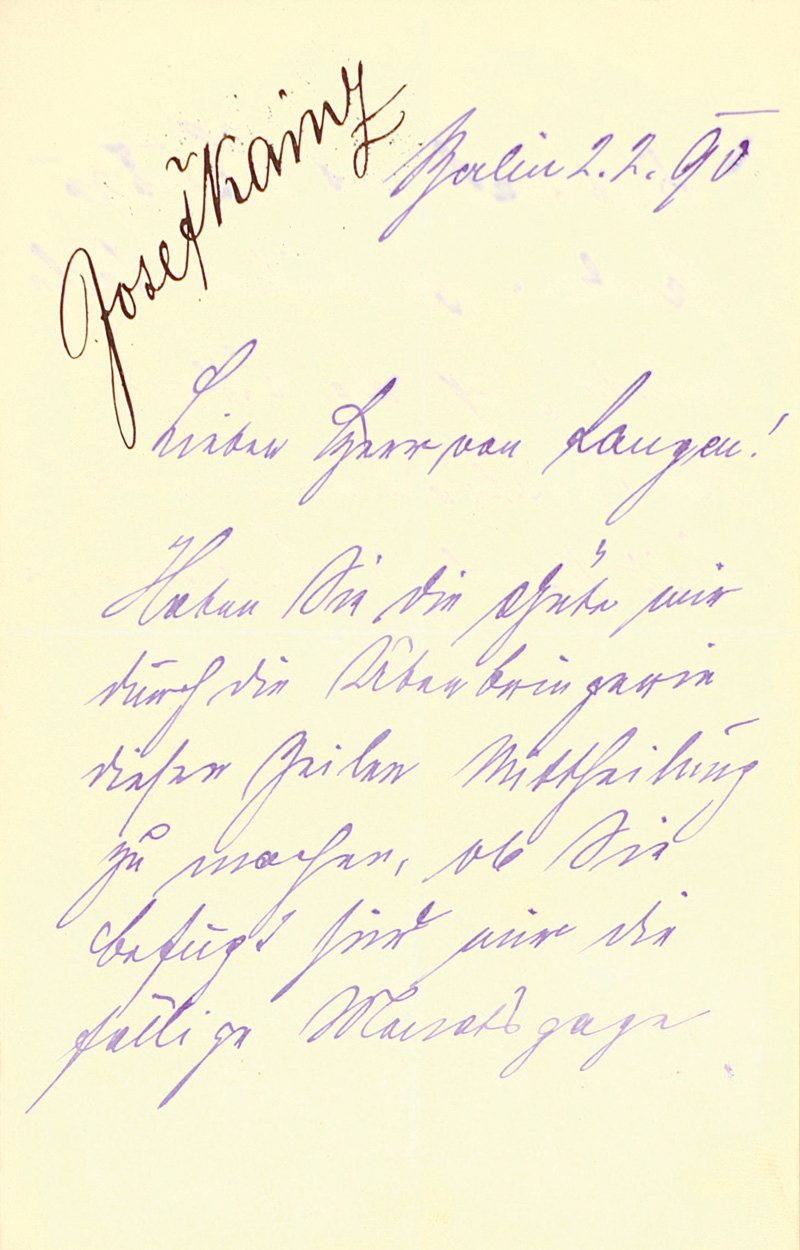 Josef Kainz
Berlin 2. 2. 90
Lieber Herr von Langen!
Haben Sie die Güte mir
durch die Überbringerin
dieser Zeilen Mittheilung
zu machen, ob Sie
befugt sind mir die
fällige Monatsgage